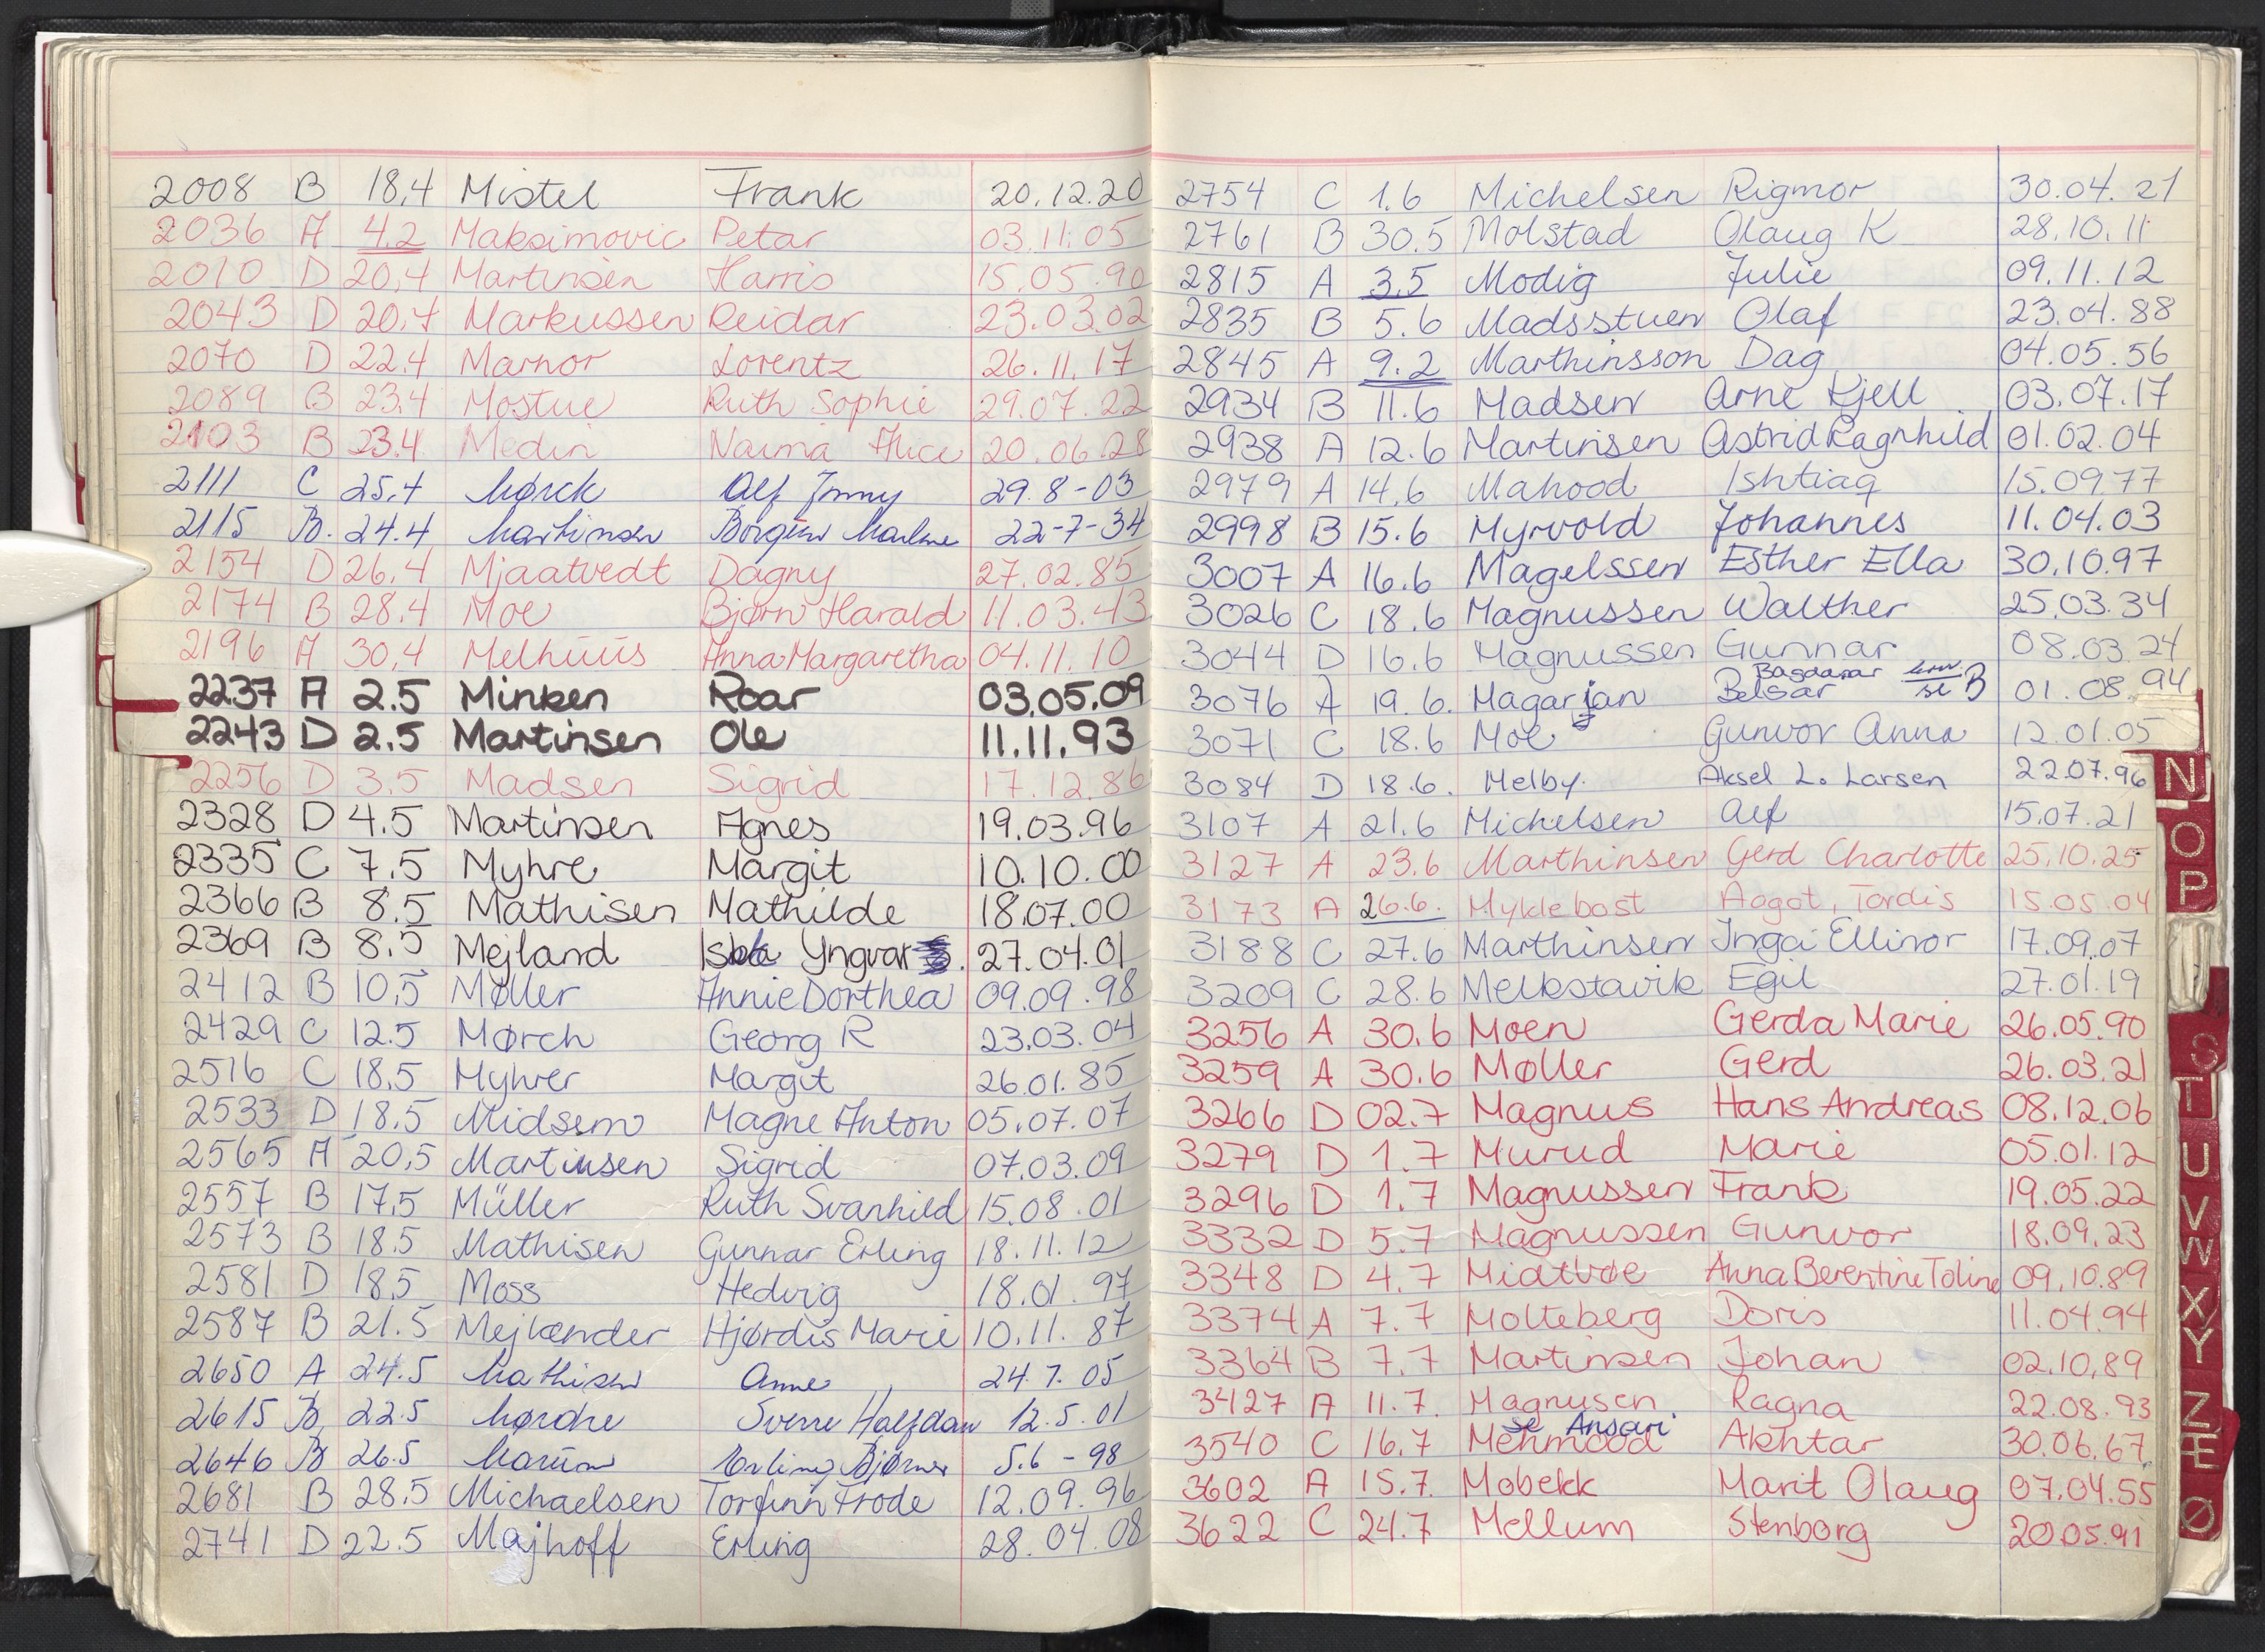 2008 B 18,4 Mistel Frank 20.12.20
2036 A 4.2 Maksimovic Petar 03.11.05
2010 D 20,4 Martinsen Harris 15.05.90
2043 D 20,4 Markussen Reidar 23.03.02
2070 D 22.4 Marnor Lorentz 26.11.17
2089 B 23,4 Mostue Ruth Sophie 29.07.22
2103 B 23.4 Medin Naima Alice 20.06.28
2111 C 25,4 Mørck Alf Jonny 29.8-03
2115 B. 24.4 Martinsen 22-7-34
2154 D 26,4 Mjaatvedt Dagny 27.02.85
2174 B 28,4 Moe Bjørn Harald 11.03.43
2196 A 30,4 Melhuus Anna Margaretha 04.11.10
2237 A 2.5 Minken Roar 03.05.09
2243 D 2.5 Martinsen Ole 11.11.93
2256 D 3.5 Madsen Sigrid 17.12.86
2328 D 4.5 Martinsen Agnes 19.03.96
2335 C 7,5 Myhre Margit 10.10.00
2366 B 8.5 Mathisen Mathilde 18.07.00
2369 B 8,5 Mejland Yngvar 27.04.01
2412 B 10,5 Møller Annie Dorthea 09.09.98
2429 C 12.5 Mørch Georg R 23.03.04
2516 C 18,5 Myhrer Margit 26.01.85
2533 D 18,5 Midsem Magne Anton 05.07.07
2565 A 20,5 Martinsen Sigrid 07.03.09
2557 B 17,5 Müller Ruth Svanhild 15.08.01
2573 B 18.5 Mathisen Gunnar Erling 18.11.12
2581 D 18,5 Moss Hedvig 18.01.97
2587 B 21.5 Mejlænder Hjørdis Marie 10.11.87
2650 A 24.5 Mathisen Anne 24.7.05
2615 B, 22.5 Mørdre Sverre Halfdan 12.5.01
2646 B 26.5 Erling Bjørner 5.6-98
2681 B 28,5 Michaelsen Torfinn Frode 12.09.96
2741 D 22.5 Majhoff Erling 28.04.08
2754 C 1.6 Michelsen Rigmor 30.04.21
2761 B 30.5 Molstad Olaug K 28.10.11
2815 A 3.5 Modig Julie 09.11.12
2835 B 5.6 Madsstuen Olaf 23.04.88
2845 A 9.2 Marthinsson Dag 04.05.56
2934 B 11.6 Madsen Arne Kjell 03.07.17
2938 A 12.6 Martinsen Astrid Ragnhild 01.02.04
2979 A 14,6 Mahood Ishtiaq 15.09.77
2998 B 15.6 Myrvold Johannes 11.04.03
3007 A 16.6 Magelssen Esther Ella 30.10.97
3026 C 18.6 Magnussen Walther 25.03.34
3044 D 16.6 Magnussen Gunnar 08.03.24
Bagdasar
3076 A 19.6. Magarjan Belsar se B 01.08.94
3071 C 18.6 Moe Gunvor Anna 12.01.05
3084 D 18.6. Melby. Aksel L. Larsen 22.07.96
3107 A 21.6 Michelsen Alf 15.07.21
3127 A 23.6 Marthinsen Gerd Charlotte 25.10.25
3173 A 26.6. Myklebost Aagot, Tordis 15.05.04
3188 C 27.6 Marthinsen Inga Ellinor 17.09.07
3209 C 28.6 Melkstavik Egil 27.01.19
3256 A 30.6 Moen Gerda Marie 26.05.90
3259 A 30.6 Møller Gerd 26.03.21
3266 D 02.7 Magnus Hans Andreas 08.12.06
3279 D 1.7 Murud Marie 05.01.12
3296 D 1.7 Magnussen Frank 19.05.22
3332 D 5.7 Magnussen Gunvor 18.09.23
3348 D 4.7 Midtbøe Anna Berentine Toline 09.10.89
3374 A 7.7 Molteberg Doris 11.04.94
3364 B 7.7 Martinsen Johan 02.10.89
3427 A 11.7. Magnusen Ragna 22.08.93
se Ansari
3540 C 16.7 Mehmood Akhtar 30.06.67
3602 A 15.7. Mobekk Marit Olaug 07.04.55
3622 C 24.7 Mellum Stenborg 20.05.91
N
O
P
S
T
U
V
W
X
Y
Z
Æ
Ø